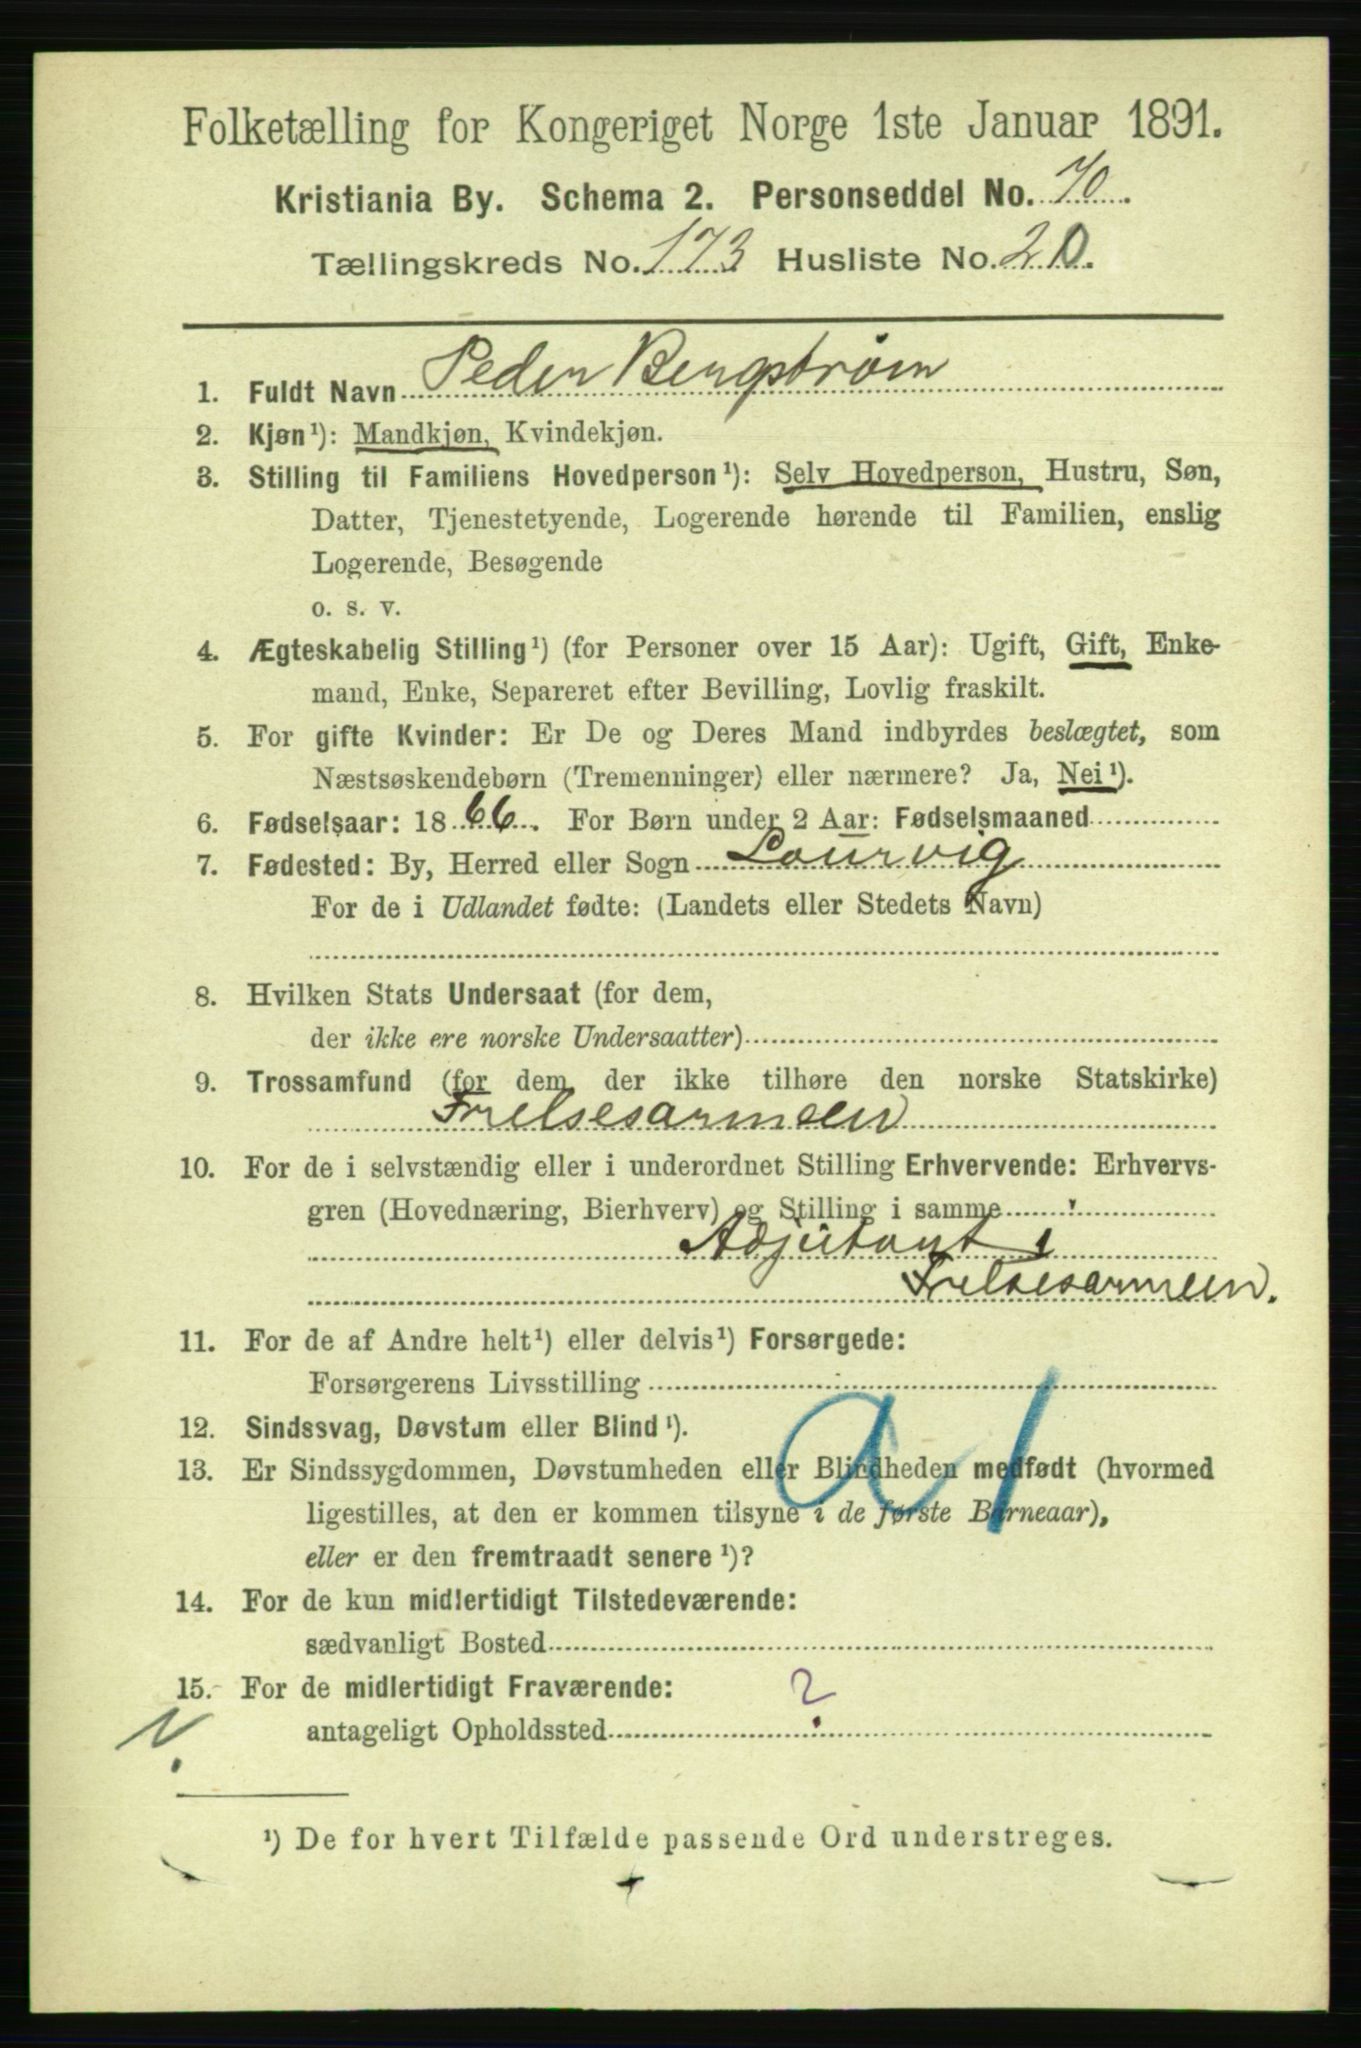 Folketælling for Kongeriget Norge 1ste Januar 1891.
Kristiania By. Schema 2. Personseddel No. 70.
Tællingskreds No. 173 Husliste No. 20.
1. Fuldt Navn Peder Bergstrøm
2. Kjøn¹): Mandkjøn, Kvindekjøn.
3. Stilling til Familiens Hovedperson¹): Selv Hovedperson, Hustru, Søn,
Datter, Tjenestetyende, Logerende hørende til Familien, enslig
Logerende, Besøgende
o. s. v.
4. Ægteskabelig Stilling¹) (for Personer over 15 Aar): Ugift, Gift, Enke-
mand, Enke, Separeret efter Bevilling, Lovlig fraskilt.
5. For gifte Kvinder: Er De og Deres Mand indbyrdes beslægtet, som
Næstsøskendebørn (Tremenninger) eller nærmere? Ja, Nei¹).
6. Fødselsaar: 1866. For Børn under 2 Aar: Fødselsmaaned
7. Fødested: By, Herred eller Sogn Laurvig
For de i Udlandet fødte: (Landets eller Stedets Navn)
8. Hvilken Stats Undersaat (for dem,
der ikke ere norske Undersaatter)
9. Trossamfund (for dem, der ikke tilhøre den norske Statskirke)
Frelsesarmeen
10. For de i selvstændig eller i underordnet Stilling Erhvervende: Erhvervs-
gren (Hovednæring, Bierhverv) og Stilling i samme
Adjutant i
Frelsesarmeen.
11. For de af Andre helt¹) eller delvis¹) Forsørgede:
Forsørgerens Livsstilling
12. Sindssvag, Døvstum eller Blind¹).
a 1
13. Er Sindssygdommen, Døvstumheden eller Blindheden medfødt (hvormed
ligestilles, at den er kommen tilsyne i de første Barneaar),
eller er den fremtraadt senere¹)?
14. For de kun midlertidigt Tilstedeværende:
sædvanligt Bosted
15. For de midlertidigt Fraværende:
antageligt Opholdssted ?
N.
¹) De for hvert Tilfælde passende Ord understreges.